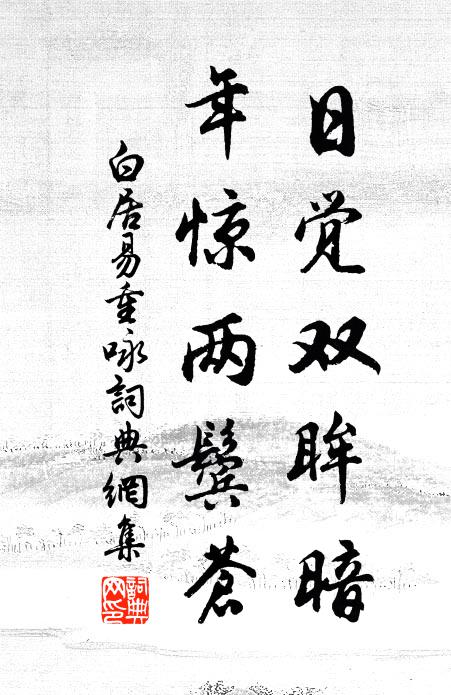 日觉双眸暗
年惊两鬓苍
白居易重咏詞典網集
詞典
网印